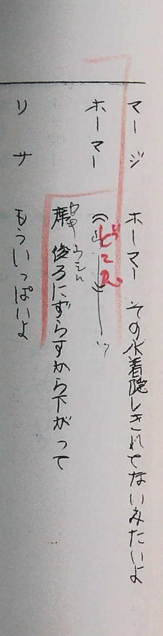 マージ ホーマー その水着隠しきれてないみたいよ
ホーマー
どこん
後ろにずらすから下がって
リサ もういっぱいよ